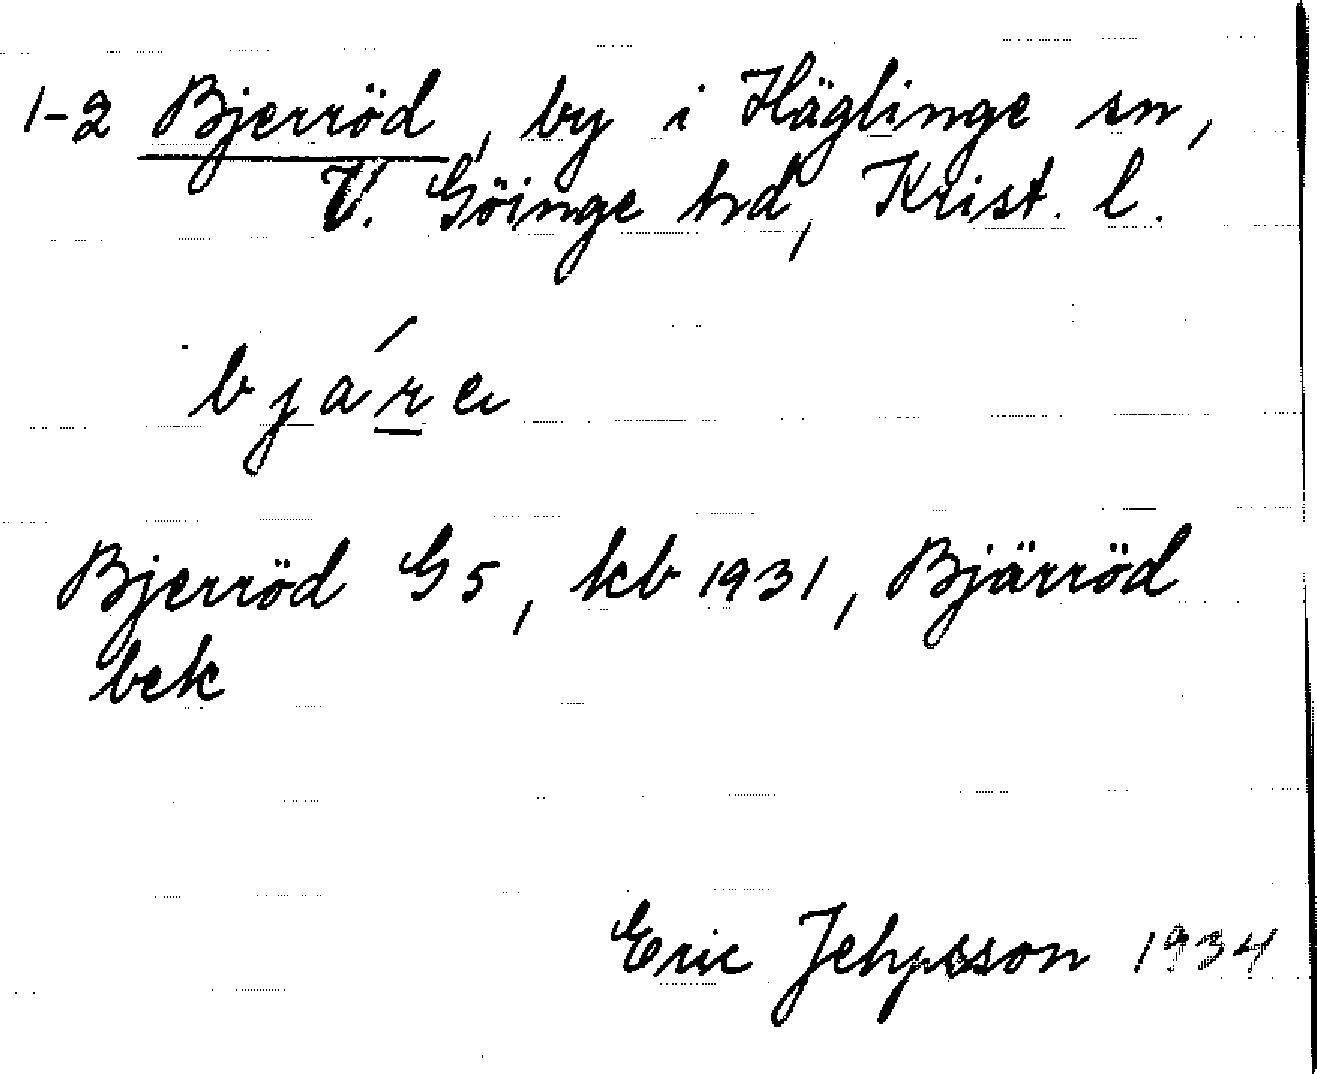 1-2 Bjerröd, by i Häglinge sn,
V. Göinge hd, Krist. l.
bjárɐ
Bjerröd G5, kb 1931, Bjärröd
bek
Eric Jehpsson 1934